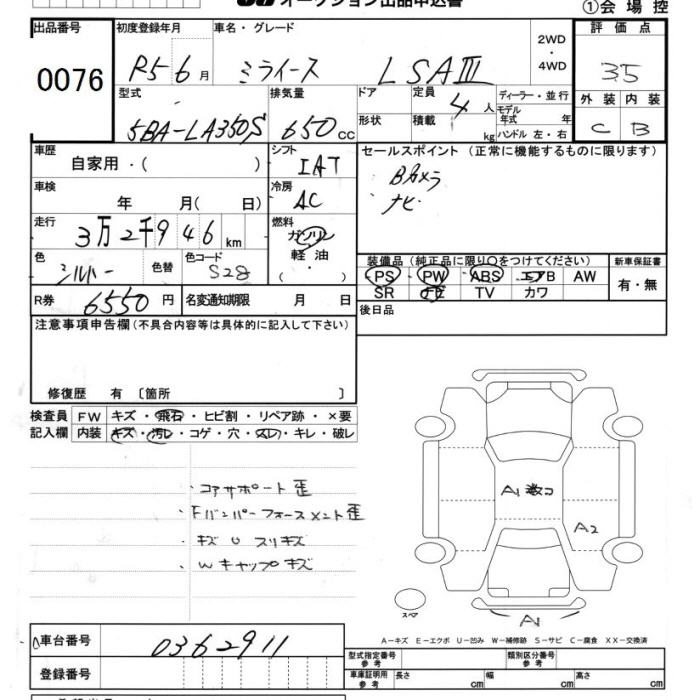 オークション出品申込書
①会場控
出品番号 初度登録年月 車名・グレード 評価点
0076 R5 6月 ミライース L SAⅢ 2WD・4WD 3.5
型式 排気量 ドア 定員 ディーラー・並行 外装 内装
5BA-LA350S 650cc 4人 モデル年式 年 C B
形状 積載 kg ハンドル 左・右
車歴 シフト セールスポイント（正常に機能するものに限ります）
自家用・（ ） IAT Bカメラ
車検 冷房 ナビ
年 月（ 日） AC
走行 燃料
3万2千946km ガソリン 軽油・（ ）
色 色替 色コード 装備品（純正品に限り○をつけてください） 新車保証書
シルバー S28 PS PW ABS エアB AW 有・無
SR TV カワ
R券 6550円 名変通知期限 月 日 後日品
注意事項申告欄（不具合内容等は具体的に記入して下さい）
修復歴 有〔箇所 〕
検査員 FW キズ・飛石・ヒビ割・リペア跡・×要
記入欄 内装 キズ・汚レ・コゲ・穴・スレ・キレ・破レ
・コアサポート歪
・Fバンパーフォースメント歪
・キズ U スリキズ
・Wキャップキズ
A1 数コ
A2
スペア
A1
A－キズ E－エクボ U－凹み W－補修跡 S－サビ C－腐食 XX－交換済
車台番号 0362911 型式指定番号 参考 類別区分番号 参考
登録番号 車庫証明用 参考 長さ cm 幅 cm 高さ cm